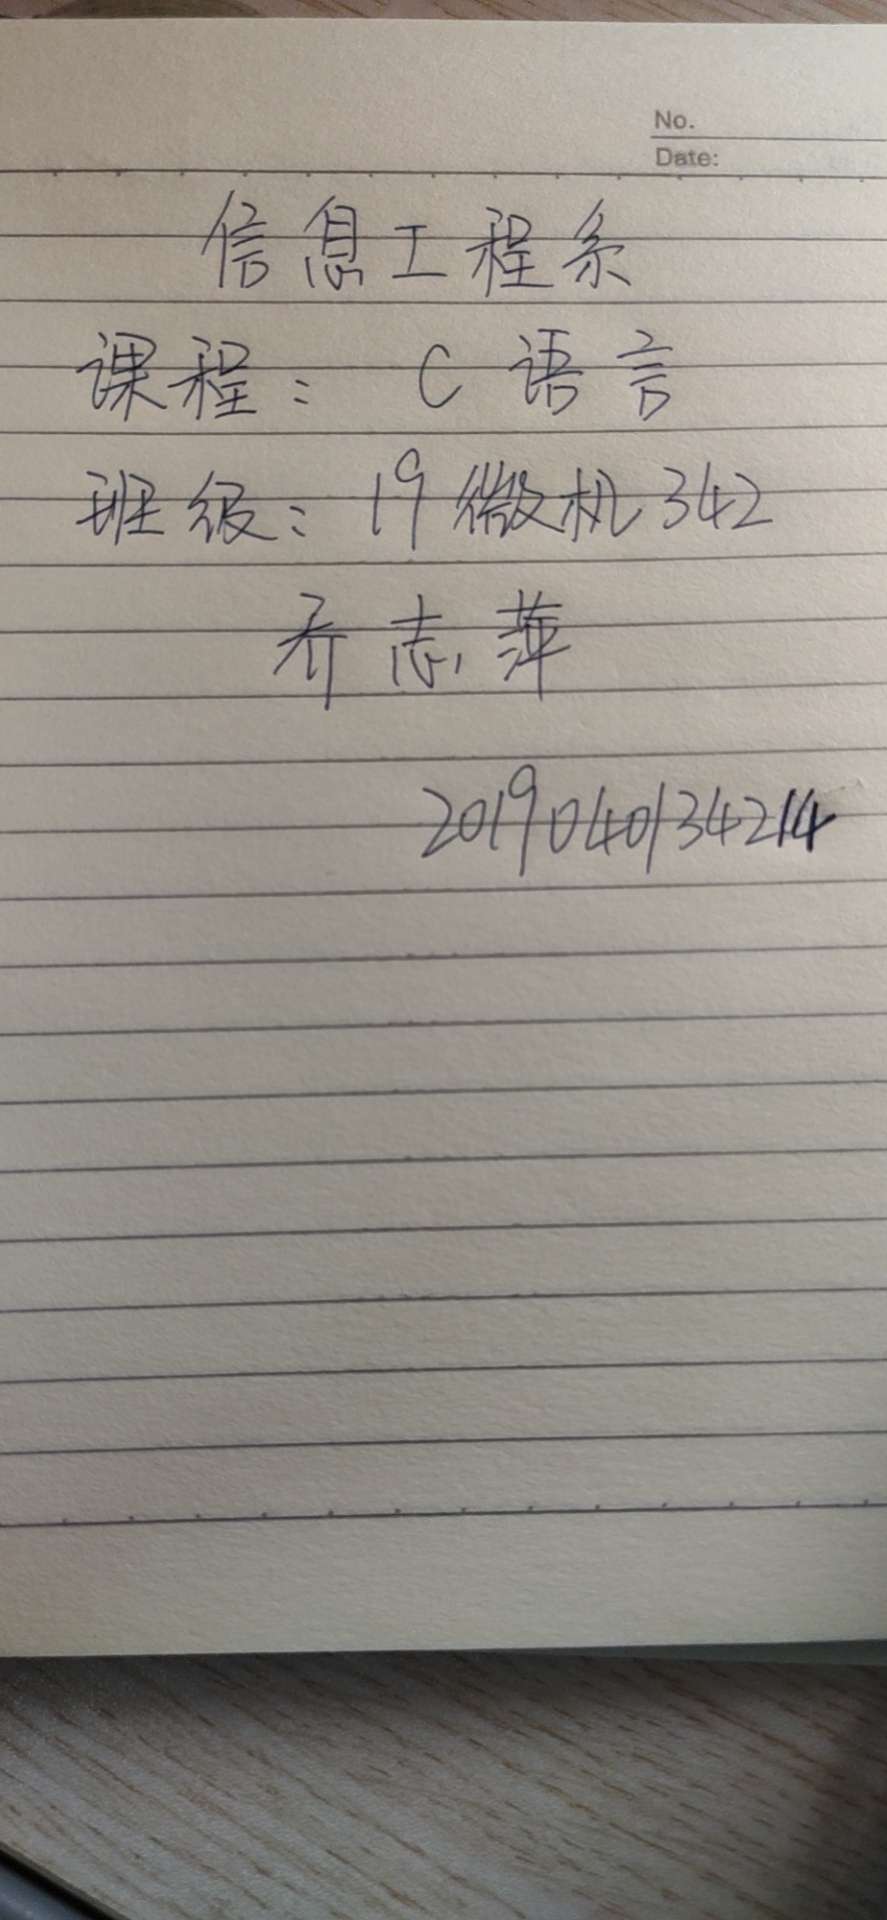 No.
Date:
信息工程系
课程: C 语言
班级: 19微机342
乔志萍
2019040134214